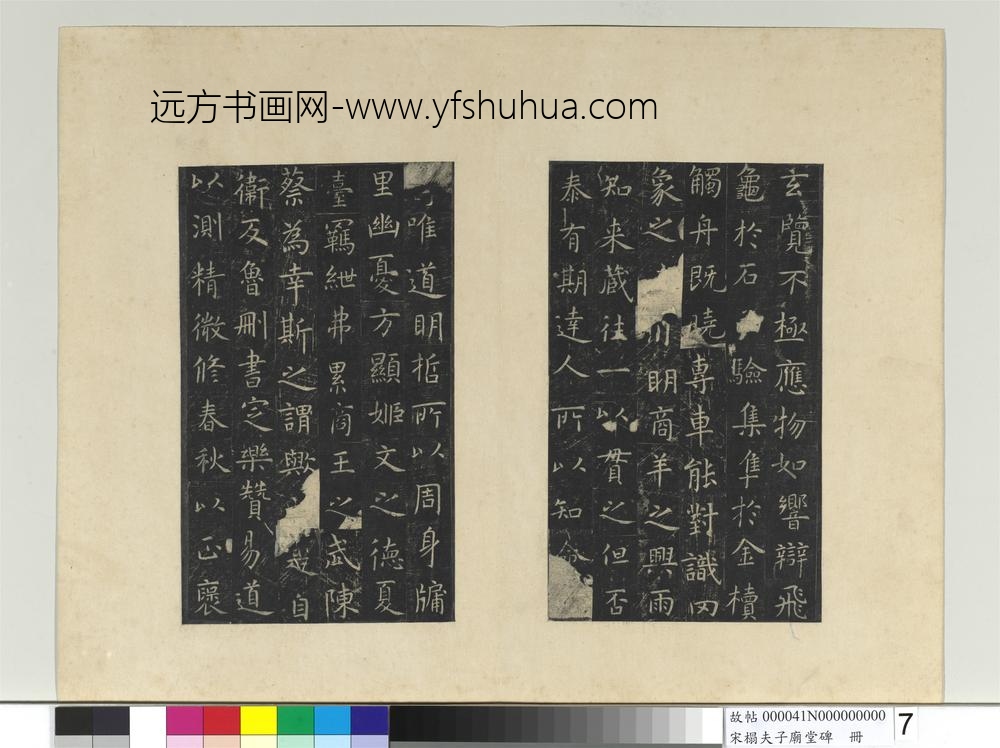 远方书画网-www.yfshuhua.com
玄覽不極應物如響辯飛
龜於石驗集隼於金櫝
觸舟既曉專車能對識罔
象之川明商羊之興雨
知来藏往一以貫之但否
泰有期達人所以知命
唯道明哲所以周身牖
里幽憂方顯姬文之德夏
臺羈紲弗累商王之武陳
蔡為幸斯之謂歟是自
衛反魯刪書定樂贊易道
以測精微修春秋以正褒
故帖 000041N000000000 7
宋搨夫子廟堂碑 冊